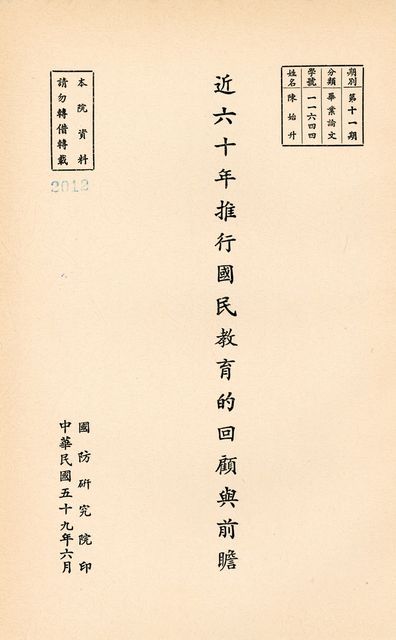 期別 第十一期
分類 畢業論文
學號 一一六四四
姓名 陳始升
近六十年推行國民教育的回顧與前瞻
本院資料
請勿轉借轉載
2012
國防研究院印
中華民國五十九年六月